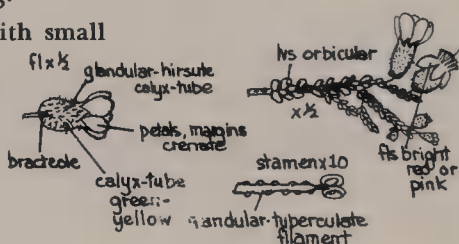 ith small
fl x ½
glandular-hirsute
calyx-tube
petals, margins
crenate
bracteole
calyx-tube
green-
yellow
lvs orbicular
x ½
fls bright
red or
pink
stamen x 10
glandular-tuberculate
filament